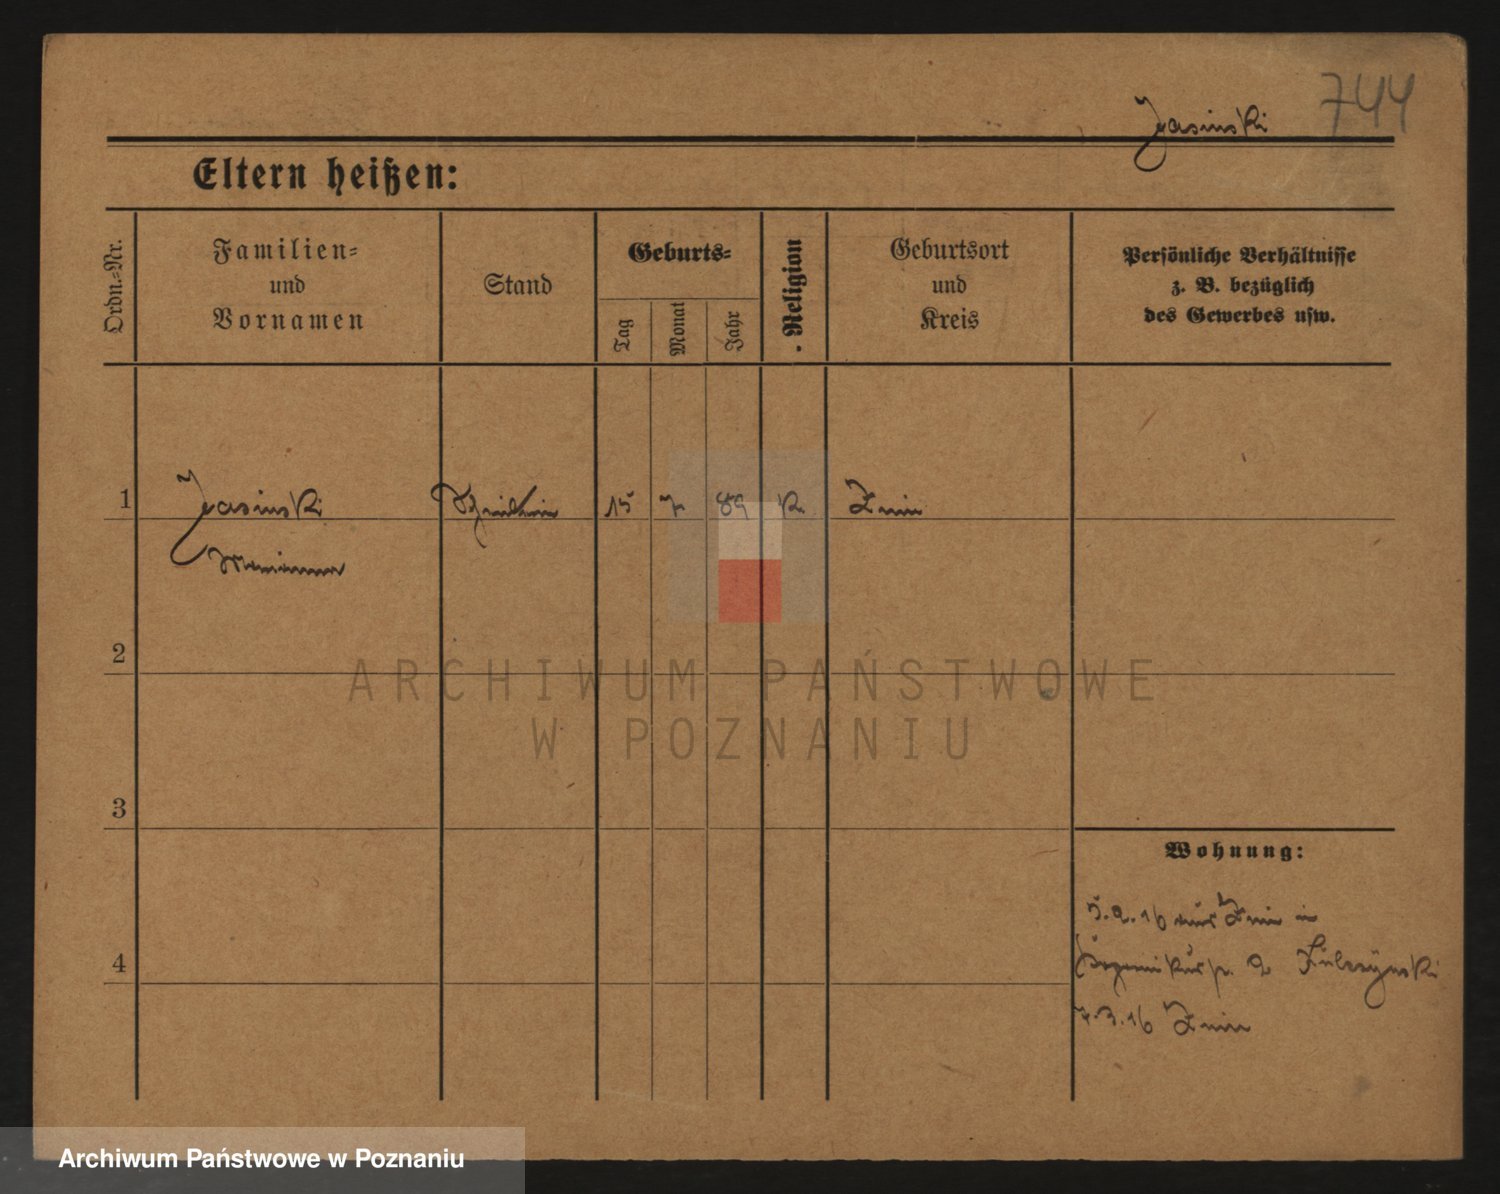 744
Jasinski
Eltern heißen:
Ordn.=Nr.
Familien=
und
Vornamen
Stand
Geburts=
Tag
Monat
Jahr
Religion
Geburtsort
und
Kreis
Persönliche Verhältnisse
z. B. bezüglich
des Gewerbes usw.
1
Jasinski
15
7
89
K.
Znin
2
3
4
Wohnung:
5.2.16 aus Znin in
2
7.3.16 Znin
ARCHIWUM PAŃSTWOWE
W POZNANIU
Archiwum Państwowe w Poznaniu